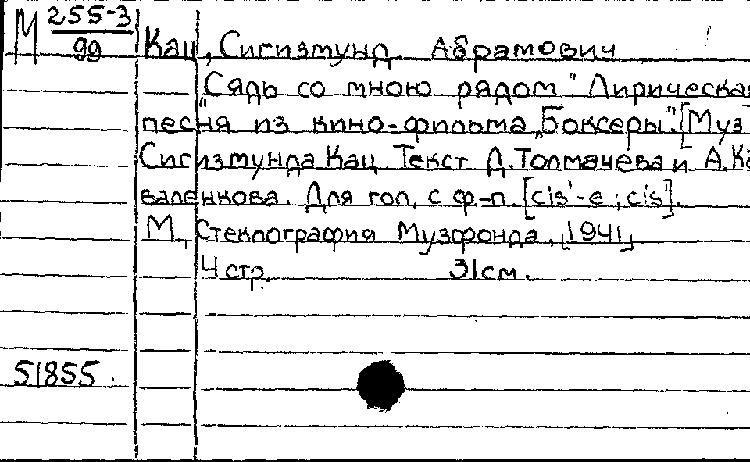 М 255-3/99 Кац, Сигизмунд Абрамович
„Сядь со мною рядом" Лирическая
песня из кино-фильма „Боксеры". [Муз
Сигизмунда Кац. Текст Д. Толмачева и А. Ко
валенкова. Для гол. с ф-п. [cis'-e ; cis].
М., Стеклография Музфонда, [1941]
4 стр. 31 см.
51855.